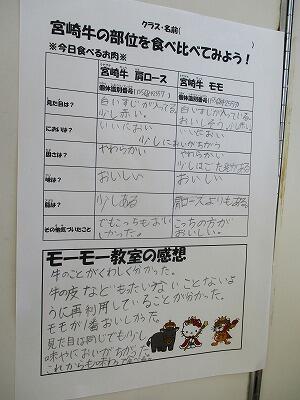 クラス・名前(
)
宮崎牛の部位を食べ比べてみよう!
※今日食べるお肉※
宮崎牛 肩ロース
宮崎牛 モモ
個体識別番号(
個体識別番号(
見た目は?
白いすじが入ってる。
少し赤い。
白いすじが入ってる。
おいしそう。少し赤い。
においは?
いいにおい
いいにおい
少しにおいがちがう
固さは?
やわらかい
やわらかい
少しはごたえがある
味は?
おいしい
おいしい
脂は?
少しある
肩ロースよりもある
その他気づいたこと
でもこっちもおい
しかった。
こっちの方が
おいしい。
モーモー教室の感想
牛のことがくわしく分かった。
牛の皮などもったいないことないよ
うに再利用していることが分かった。
モモが1番おいしかった。
見た目は同じでも少し
味やにおいがちがった。
これからも